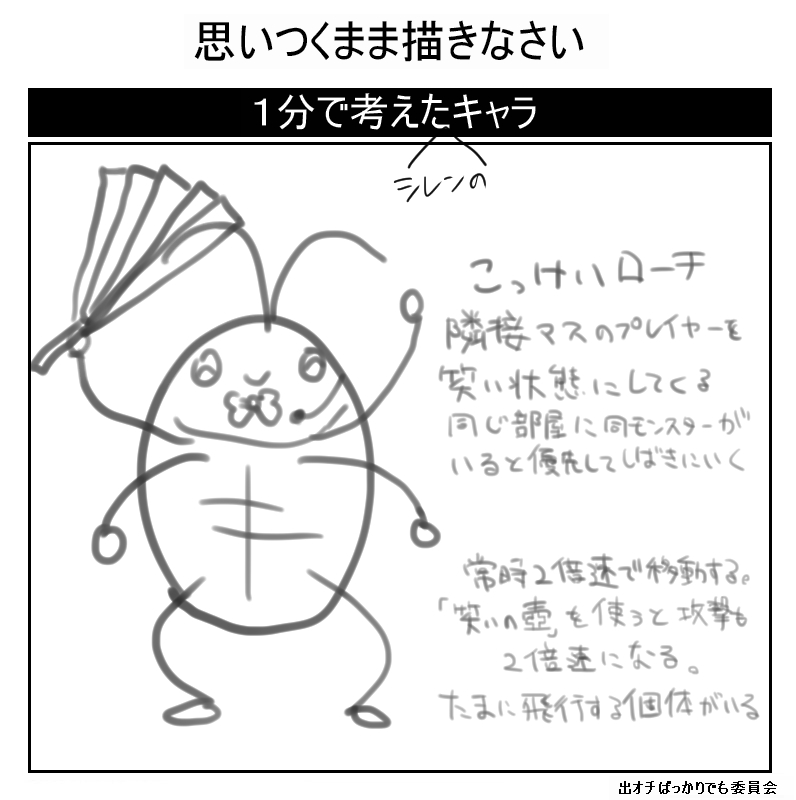 思いつくまま描きなさい
１分で考えたキャラ
シレンの
こっけいローチ
隣接マスのプレイヤーを
笑い状態にしてくる
同じ部屋に同モンスターが
いると優先してしばきにいく
常時2倍速で移動する。
「笑いの壺」を使うと攻撃も
2倍速になる。
たまに飛行する個体がいる
出オチばっかりでも委員会